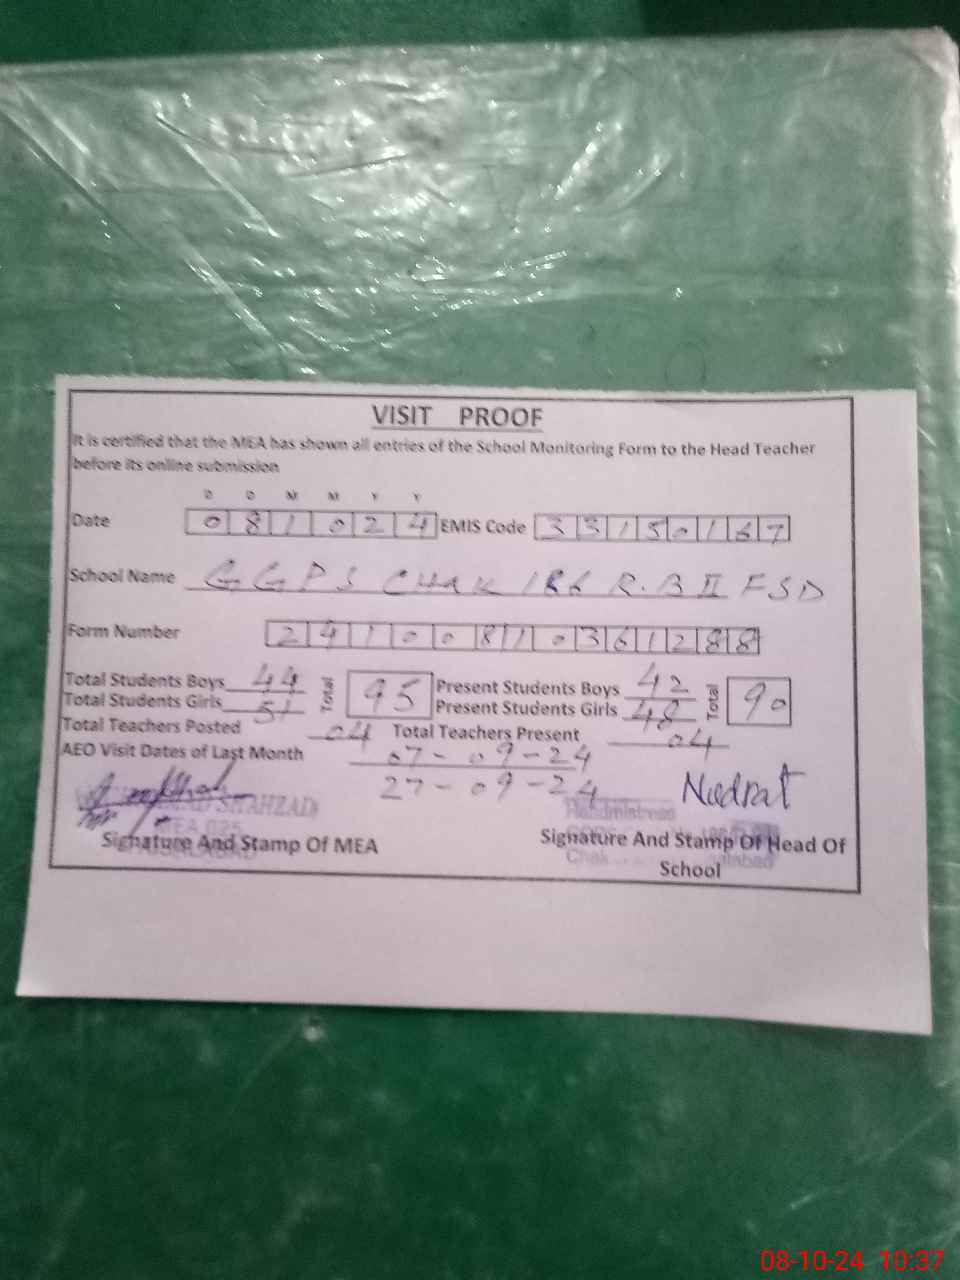 VISIT PROOF
It is certified that the MEA has shown all entries of the School Monitoring Form to the Head Teacher
before its online submission
D D M M Y Y
Date 081024 EMIS Code 33150167
School Name GGPS CHAK 186 R.B II FSD
Form Number 24100810361288
Total Students Boys 44 Total 95 Present Students Boys 42 Total 90
Total Students Girls 51 Present Students Girls 48
Total Teachers Posted 04 Total Teachers Present 04
AEO Visit Dates of Last Month 07-09-24
27-09-24
SHAHZAD Headmistress Nudrat
MEA 025
Signature And Stamp Of MEA Signature And Stamp Of Head Of
Chak
School
08-10-24 10:37